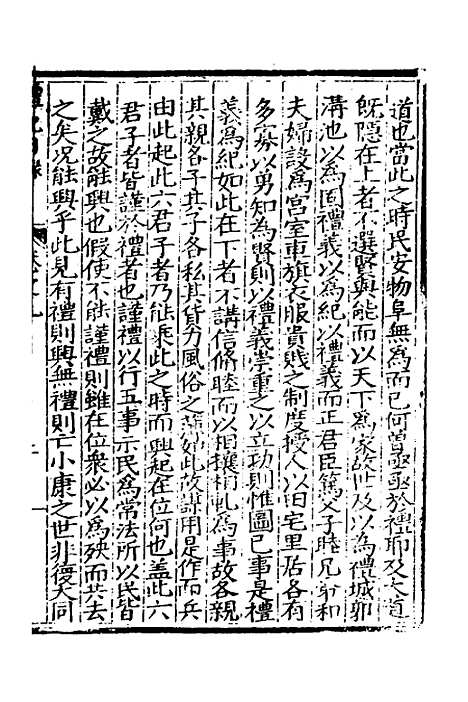 道也當此之時民安物阜無為而已何曽亟亟於禮耶及大道
旣隱在上者不選賢與能而以天下為家故世及以為禮城郭
溝池以為固禮義以為紀以禮義而正君臣篤父子睦兄弟和
夫婦設為宫室車旗衣服貴賤之制度授人以田宅里居各有
多寡以勇知為賢則以禮義崇重之以立功則惟圖已事是禮
義為紀如此在下者不講信脩睦而以相攘相軋為事故各親
其親各子其子各私其貨力風俗之薄如此故謀用是作而兵
由此起此六君子者乃能乘此之時而興起在位何也盖此六
君子者皆謹於禮者也謹禮以行五事示民為常法所以民皆
戴之故能興也假使不能謹禮則雖在位衆必以為殃而共去
之矣况能興乎此見有禮則興無禮則亡小康之世非復大同